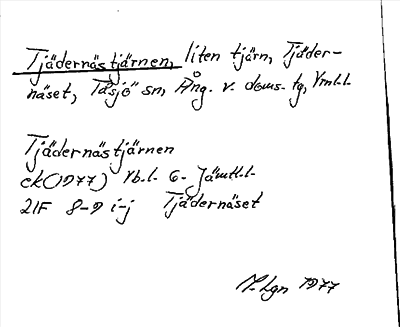 Tjädernästjärnen, liten tjärn, Tjäder-
näset, Tåsjö sn, Ång. v. doms.tg, Vrnl.l.
Tjädernästjärnen
ek (1977) Vb.l. G. Jämtl.l.
21F 8-9 i-j Tjädernäset
1977